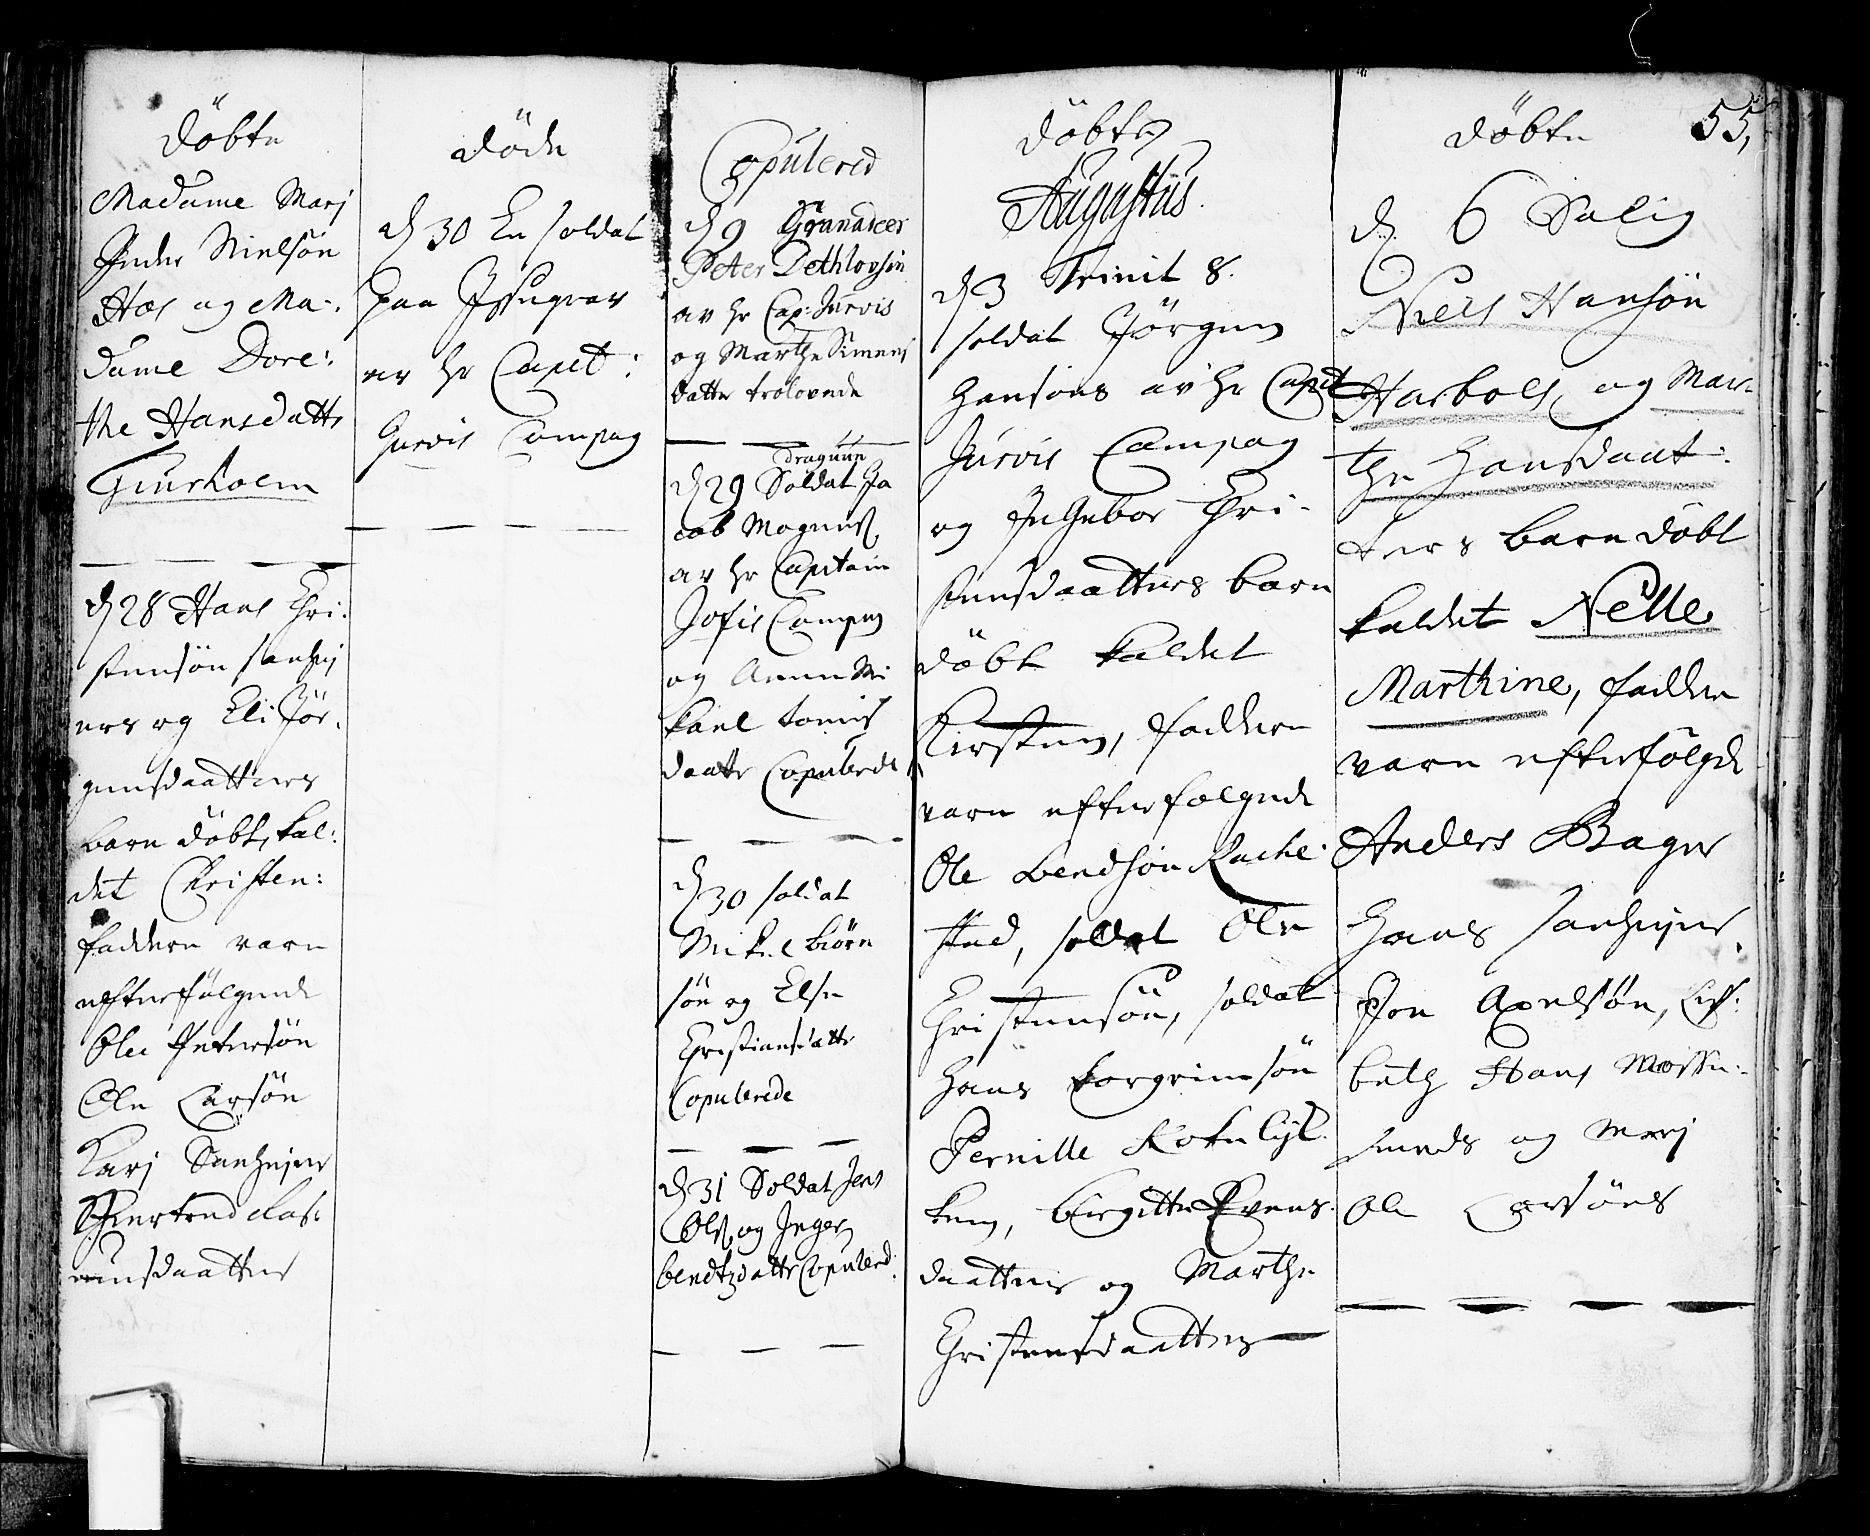 Döbte
Madame Marj
Peder Nielsön
Hos og Ma-
dame Dore:
the Hansdatts
Giurholm
d 28 Hans Chri:
stensön
ers og Eli Jör:
gensdaatters
barn döbt, kal:
det Christen:
faddere vare
efterfölgende
Ole Petersön
Ole Larsön
Karj
döde
d 30 En soldat
paa
av hr Capit:
Jurvis Compag
Copulered
d 9 Granadeer
Peter Dethlovsön
av hr Cap: Jurvis
og Marthe Simens
datte trolovede
draguun
d 29 Soldat Ja
cob Mognes
av hr Capitain
Compag
og Anne Mi
kael
daatr Copulerede
d 30 soldat
Mikel biörn
sön og Else
Christiansdatte
Copulerede
d 31 Soldat Jens
Ols og Inger
bendtzdattr Copulered:
Döbte
Augustus.
d 3 Trinit 8.
soldat Jörgen
Hansöns av hr Capit
Jurvis Compag
og Ingebor Chri-
stensdaatters barn
döbt kaldet
Kirsten, faddere
vare efterfølgende
Ole bendsön Rache
stad, soldat Ole
Christensön, soldat
Hans torgrimsön
Pernille
ken, birgitte Evens.
daatter og Marthe
Christensdaatter
55,
Döbte
d 6 Salig
Niels Hansön
Harbols, og Mar-
the Hansdaat:
ters barn döbt
kaldet Nelle
Marthine, faddere
vare efterfölgde
Anders Bager
Hans
Jon Axelsön, Lis:
beth Hans Mosse:
smeds og Marj
Ole Larsöns